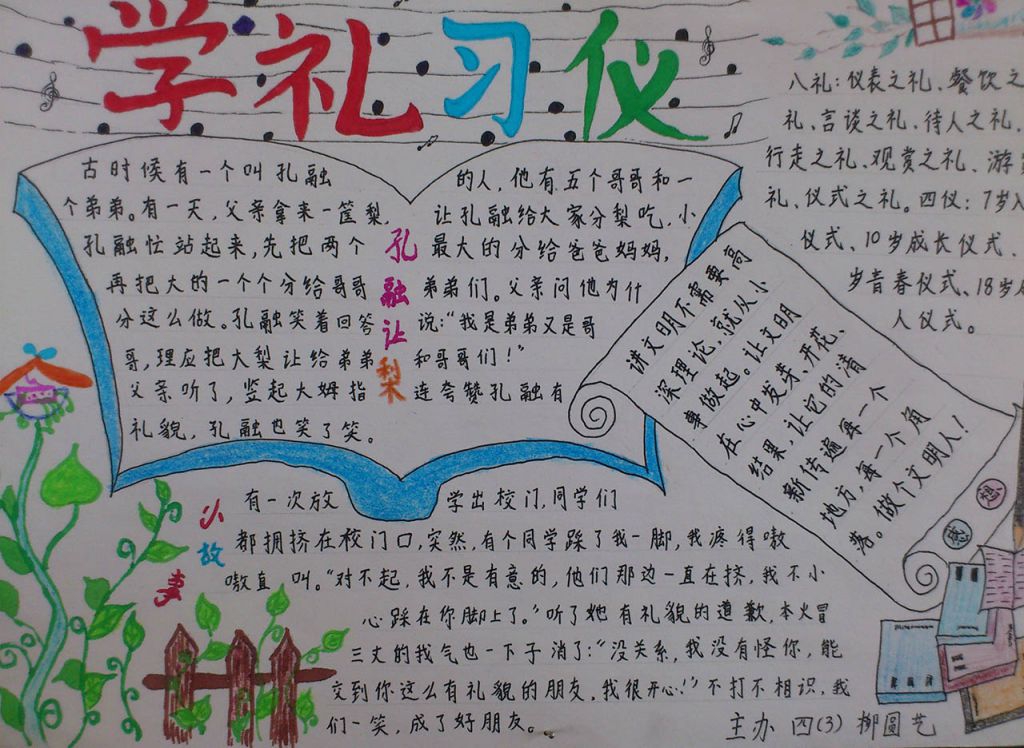 学礼习仪
八礼：仪表之礼、餐饮之
礼、言谈之礼、待人之礼、
行走之礼、观赏之礼、游
礼、仪式之礼。四仪：7岁入
仪式、10岁成长仪式、
岁音春仪式、18岁
人仪式。
孔融让梨
古时候有一个叫孔融的人，他有五个哥哥和一
个弟弟。有一天，父亲拿来一筐梨，让孔融给大家分梨吃，小
孔融忙站起来，先把两个最大的分给爸爸妈妈，
再把大的一个个分给哥哥弟弟们。父亲问他为什
分这么做。孔融笑着回答说：“我是弟弟又是哥
哥，理应把大梨让给弟弟和哥哥们！”
父亲听了，竖起大姆指连夸赞孔融有
礼貌，孔融也笑了笑。
讲文明不需要高
深理论，就从小
事做起。让文明
在心中发芽、开花、
结果，让它的清
新传遍每一个
地方，每一个角
落。做个文明人！
小故事
有一次放学出校门，同学们
都拥挤在校门口，突然，有个同学踩了我一脚，我疼得嗷
嗷直叫。“对不起，我不是有意的，他们那边一直在挤，我不小
心踩在你脚上了。”听了她有礼貌的道歉，本火冒
三丈的我气也一下子消了：“没关系，我没有怪你，能
交到你这么有礼貌的朋友，我很开心！”不打不相识，我
们一笑，成了好朋友。
主办 四(3) 柳圆艺